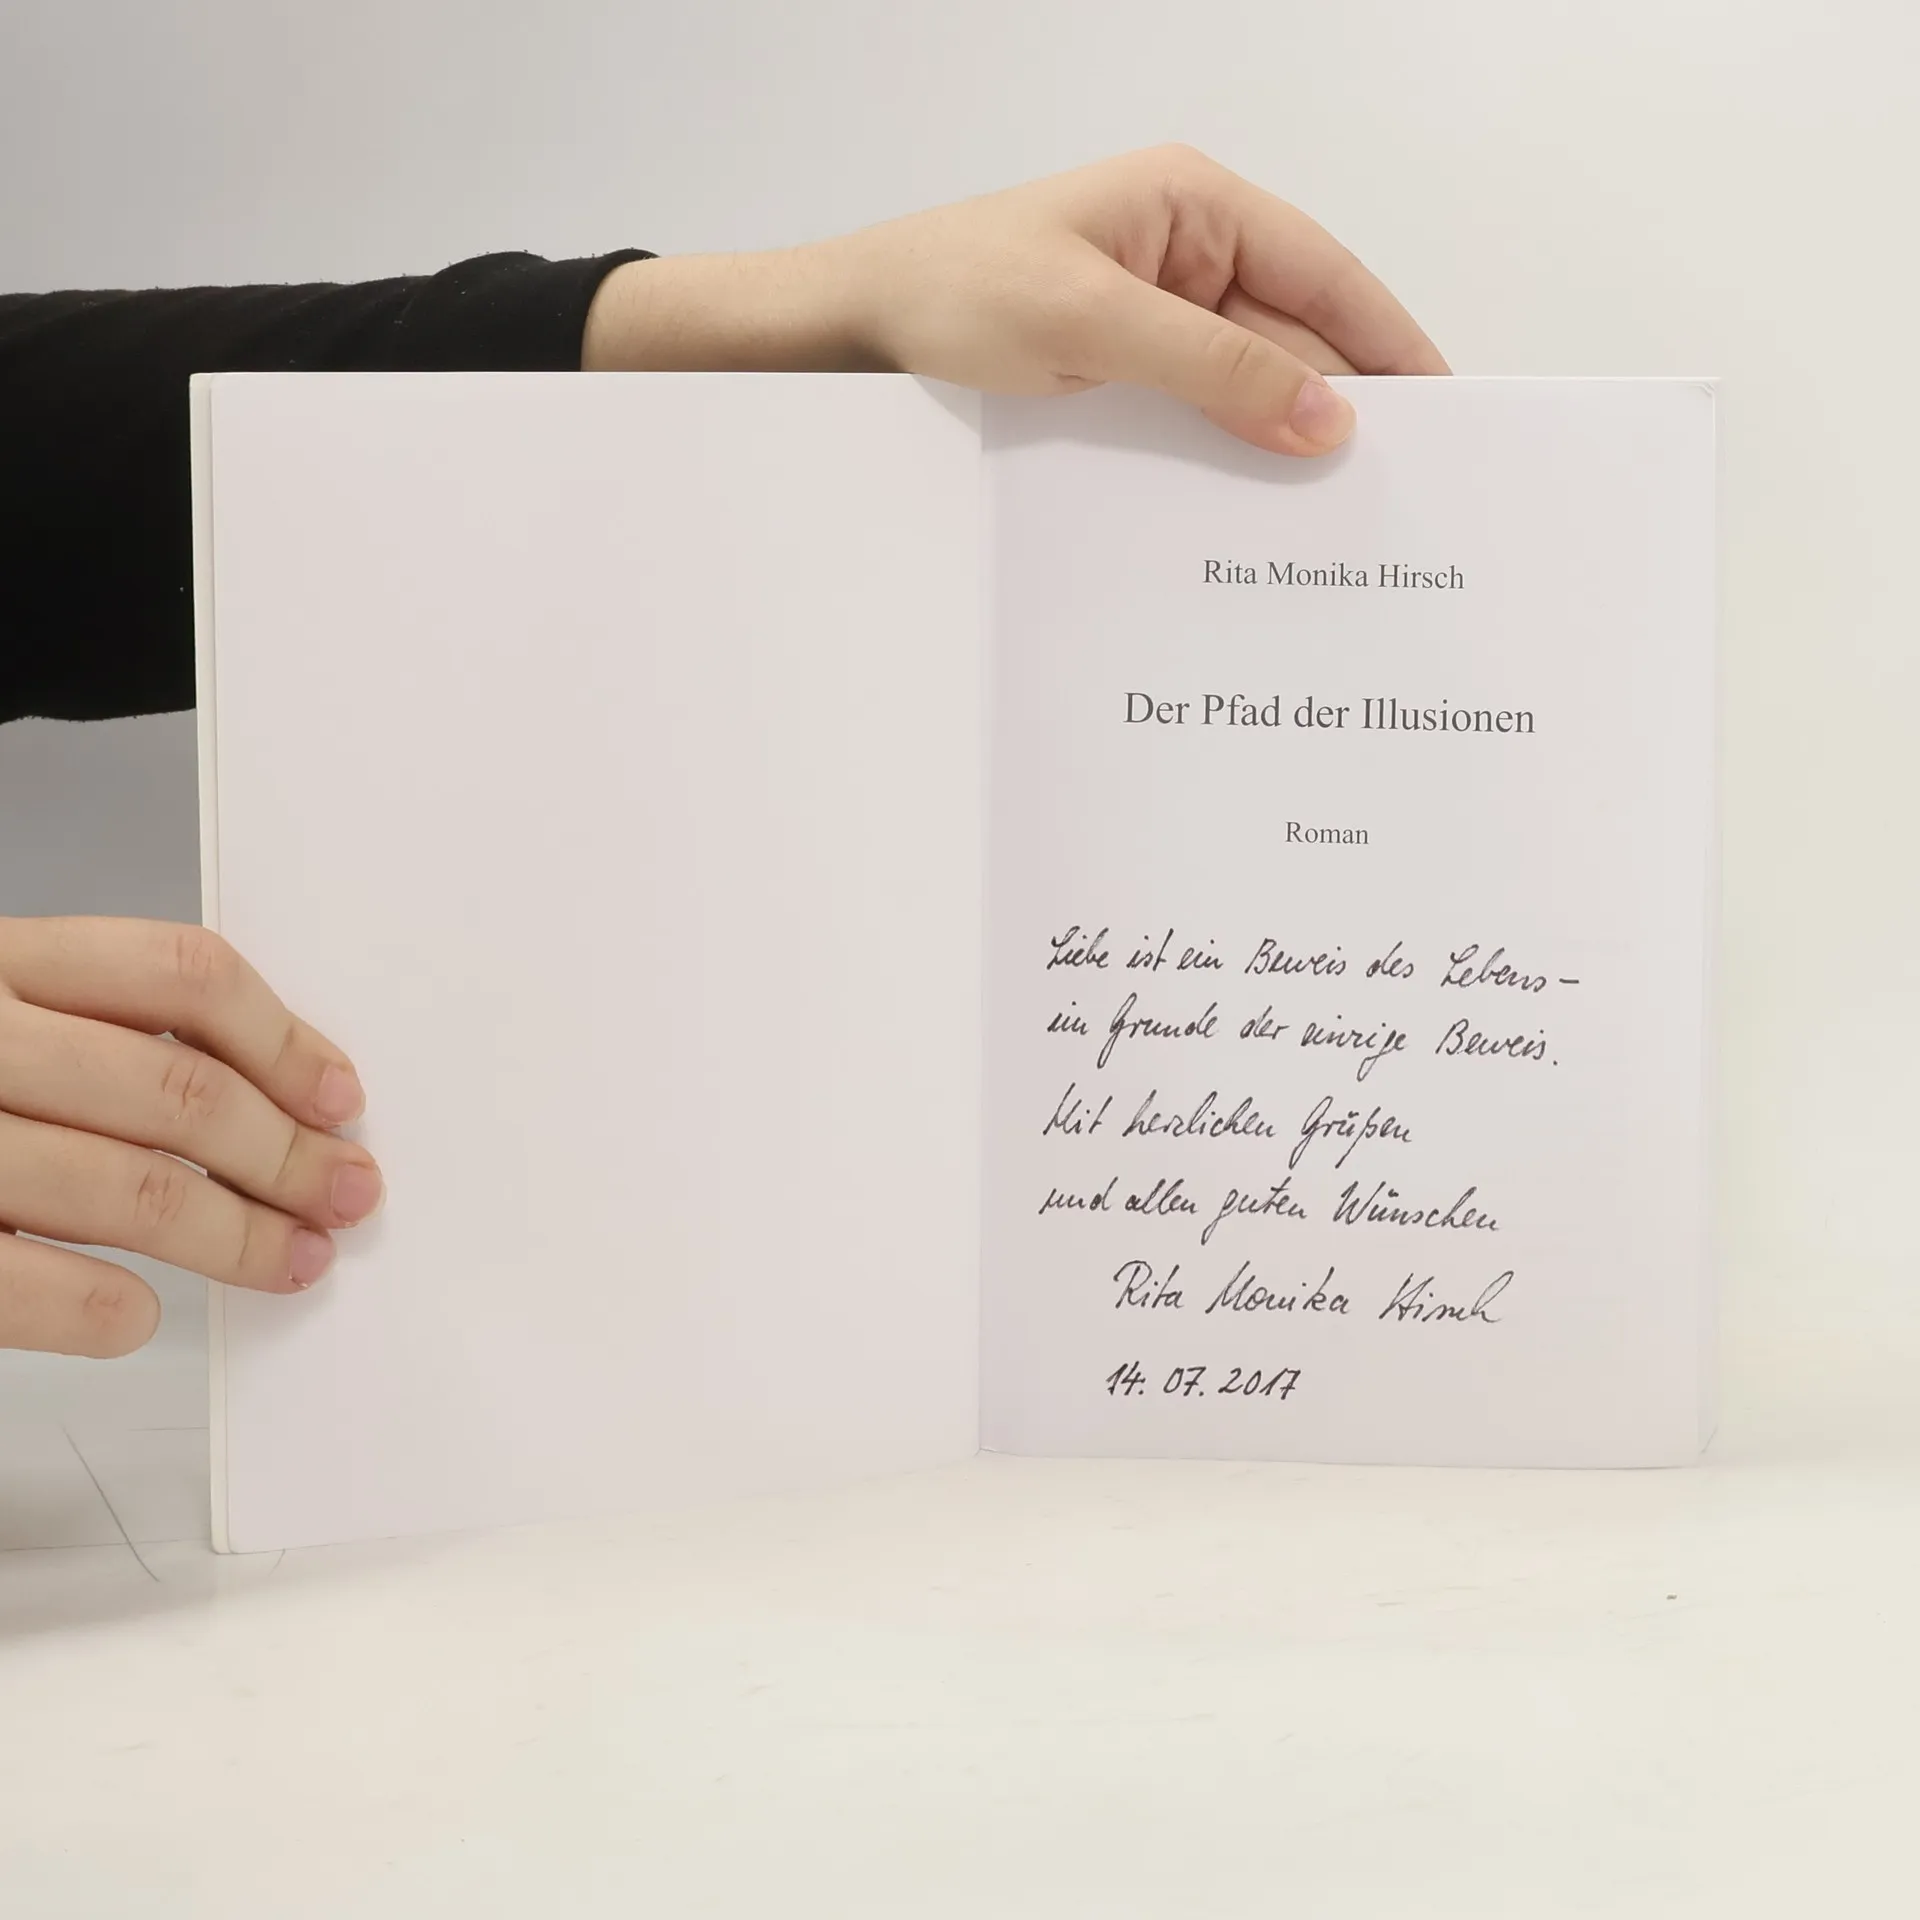 Rita Monika Hirsch
Der Pfad der Illusionen
Roman
Liebe ist ein Beweis des Lebens –
im Grunde der einzige Beweis.
Mit herzlichen Grüßen
und allen guten Wünschen
Rita Monika Hirsch
14. 07. 2017